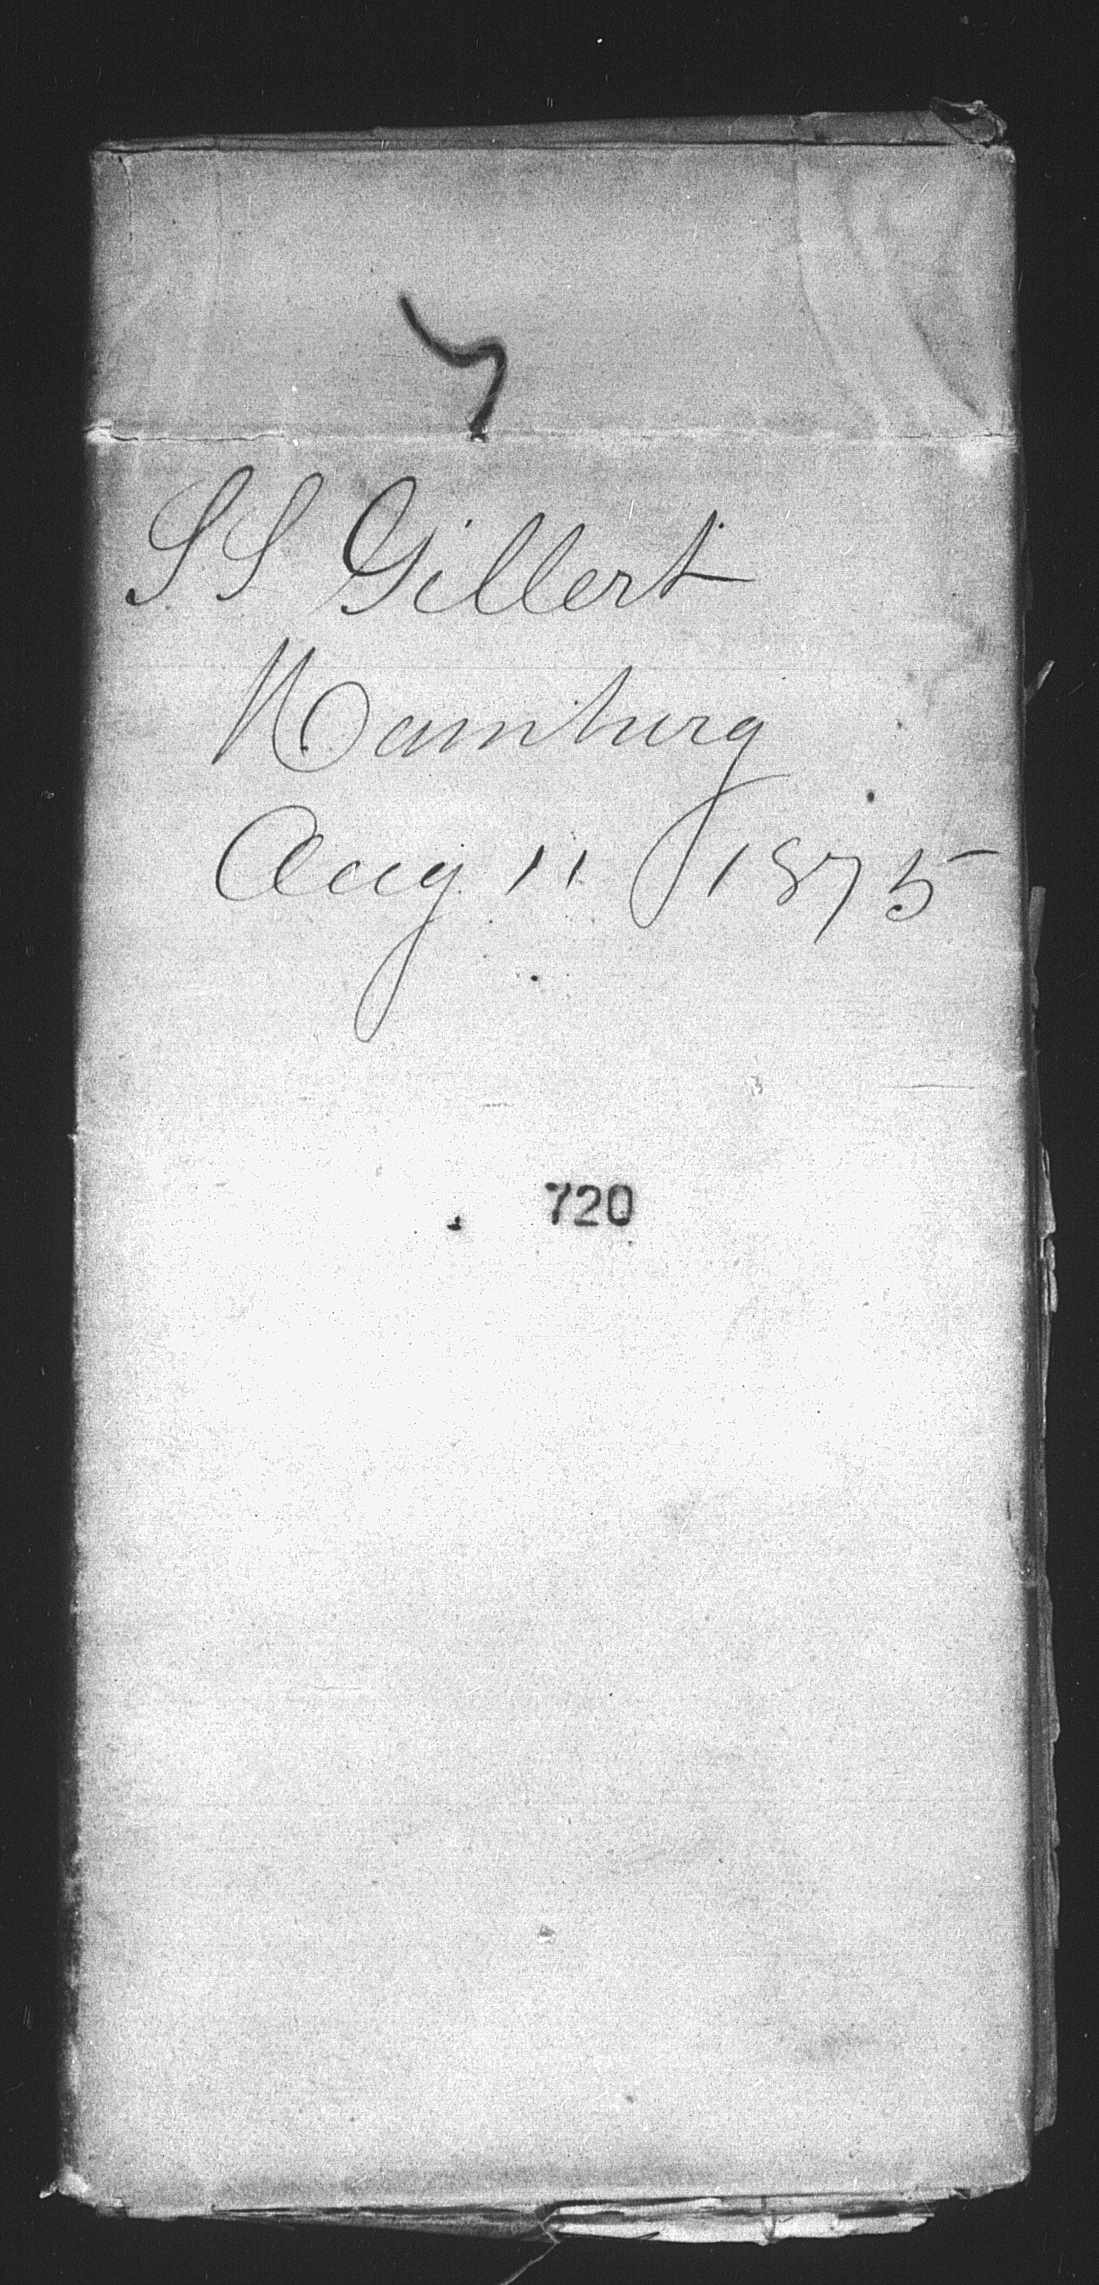 SS Gellert
Hamburg
Aug 11 1875
720